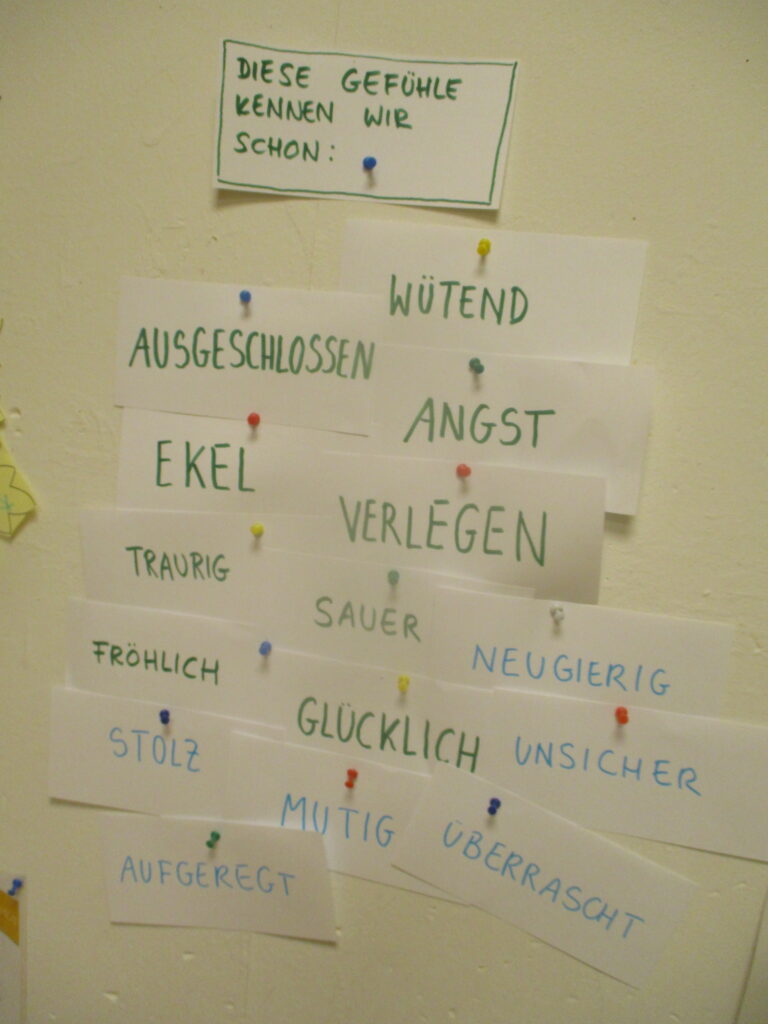 DIESE GEFÜHLE
KENNEN WIR
SCHON:
WÜTEND
AUSGESCHLOSSEN
ANGST
EKEL
VERLEGEN
TRAURIG
SAUER
NEUGIERIG
FRÖHLICH
GLÜCKLICH
UNSICHER
STOLZ
MUTIG
ÜBERRASCHT
AUFGEREGT